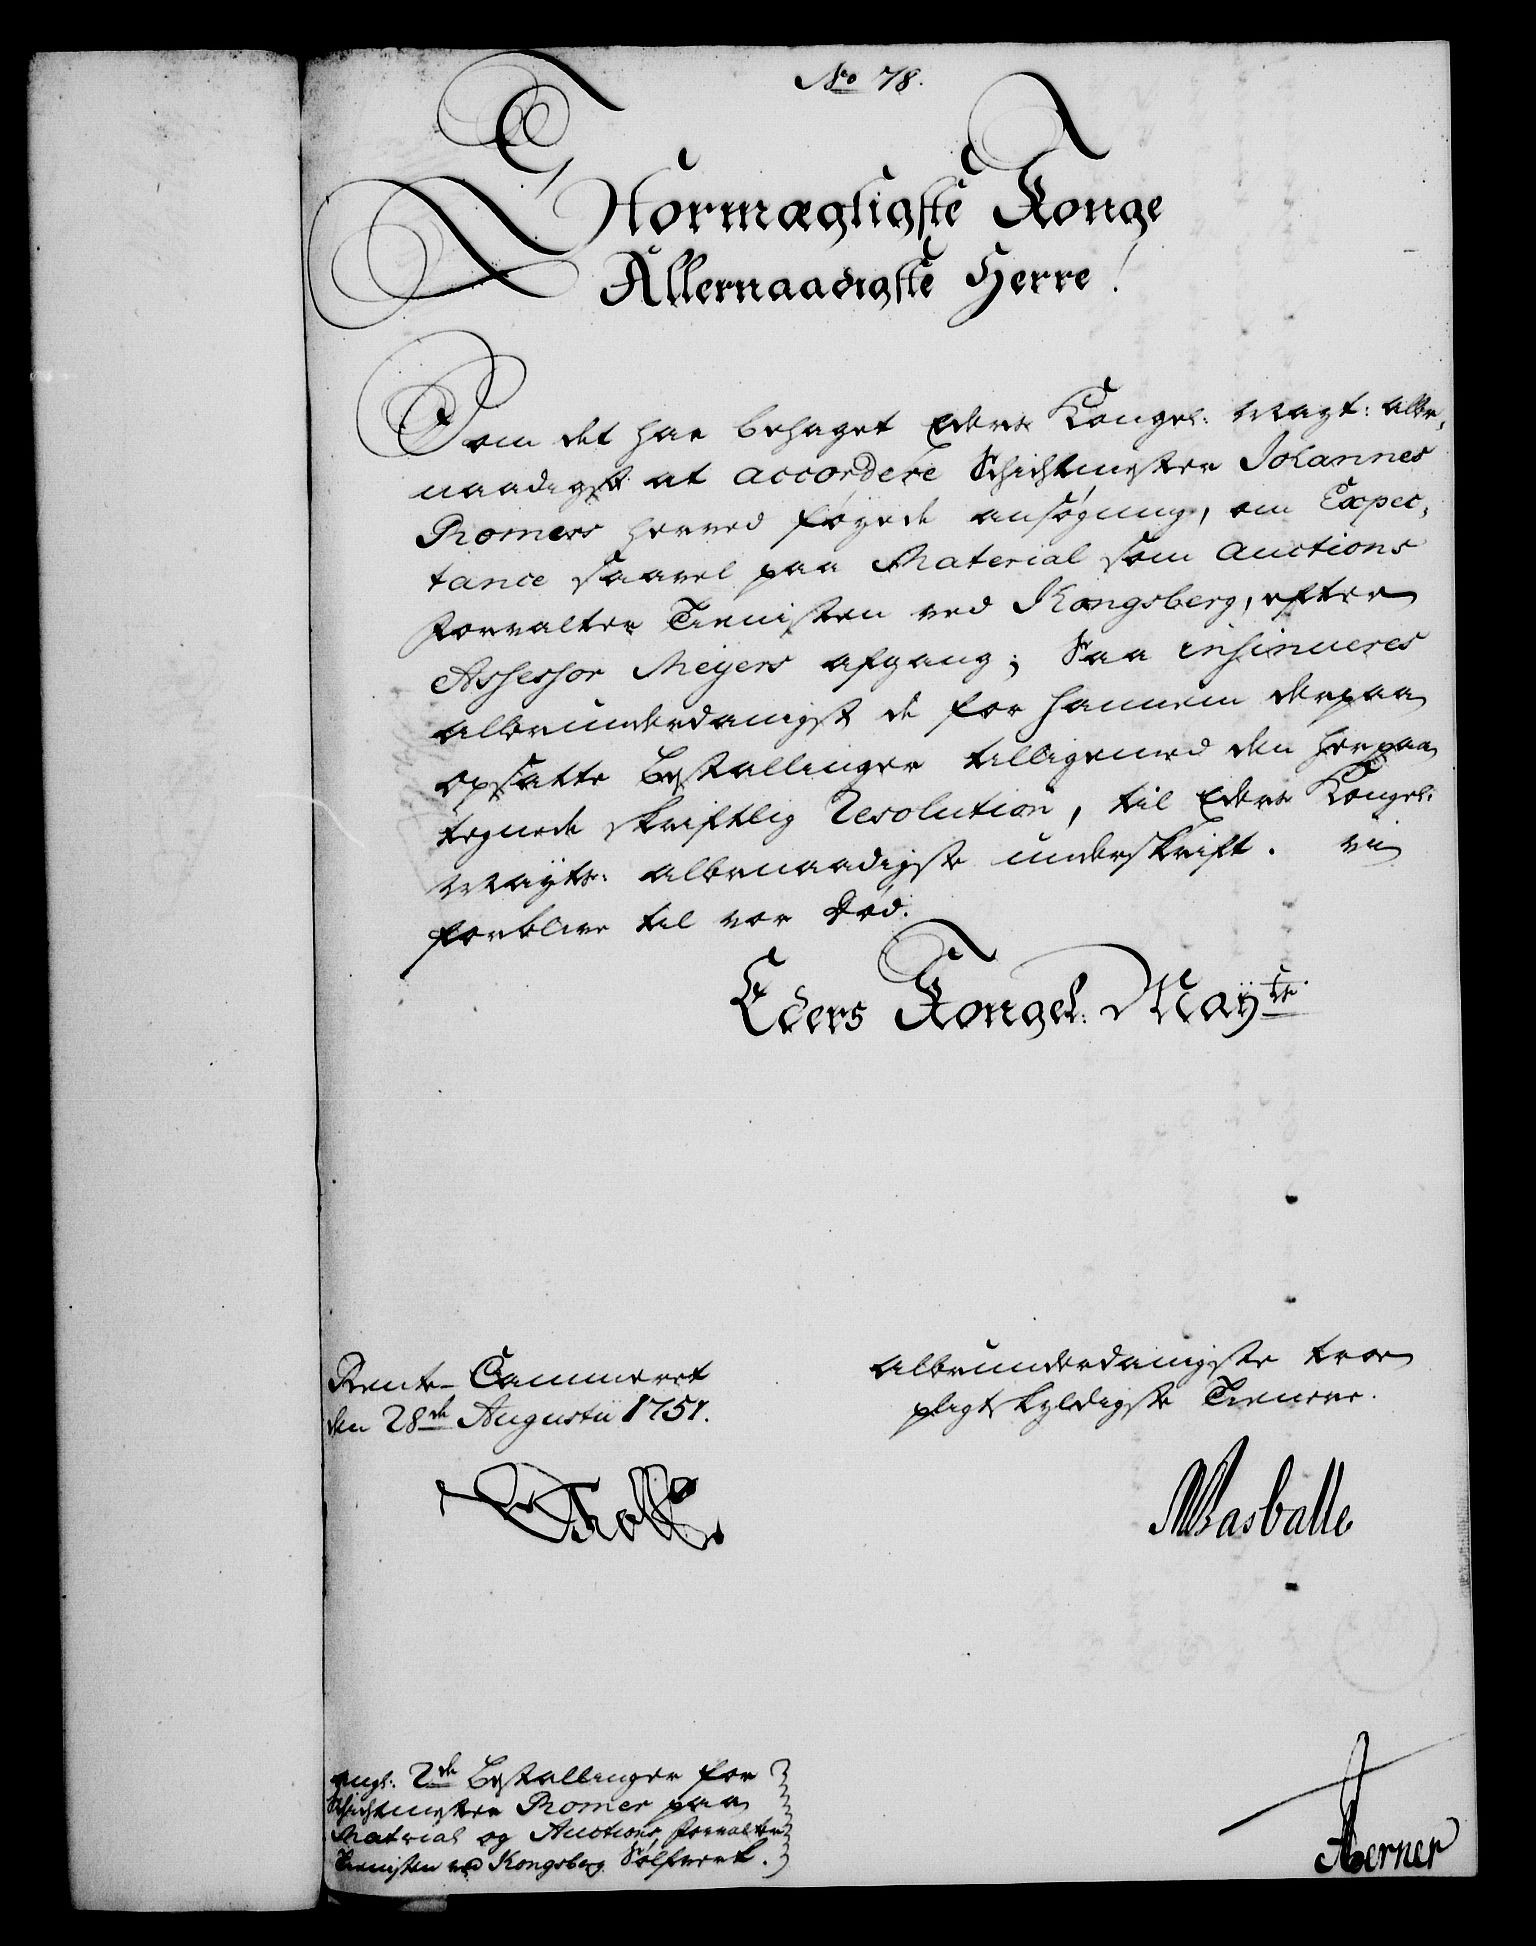 No 78.
Stormægtigste Konge
Allernaadigste Herre!
Som det har behaget Eders Kongel: Mayt: aller,
naadigst at accordere Schichtmester Johannes
Romers herved föyede ansögning, om Expec,
tance saavel paa Material som Auctions
forvalter Tienisten ved Kongsberg, efter
Assessor Meyers afgang; Saa insinueres
allerunderdanigst de for hannem derpaa
opsatte Bestallinger tilligemed den herpaa
tegnede skriftlig Resolution, til Eders Kongel:
Mayts: allernaadigste underskrift. vi
forblive til vor Död.
Eders Kongel: Mayts
Rente-Cammeret
den 28de Augustii 1751.
allerunderdanigste troe
pligtskyldigste Tienere.
Holst
Wasballe
angl: 2de Bestallinger for
Schichtmester Romer paa
Material og Auctions forvalter
Tienisten ved Kongsberg Sölfverk.